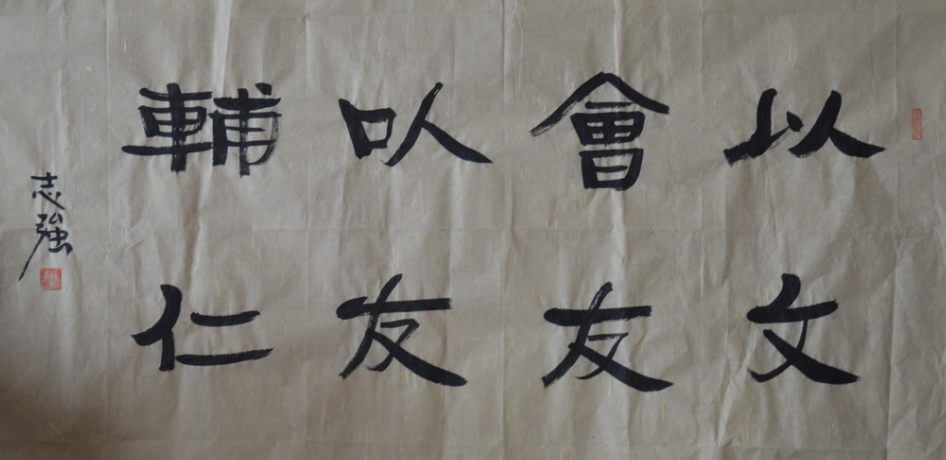 以文
會友
以友
輔仁
志強